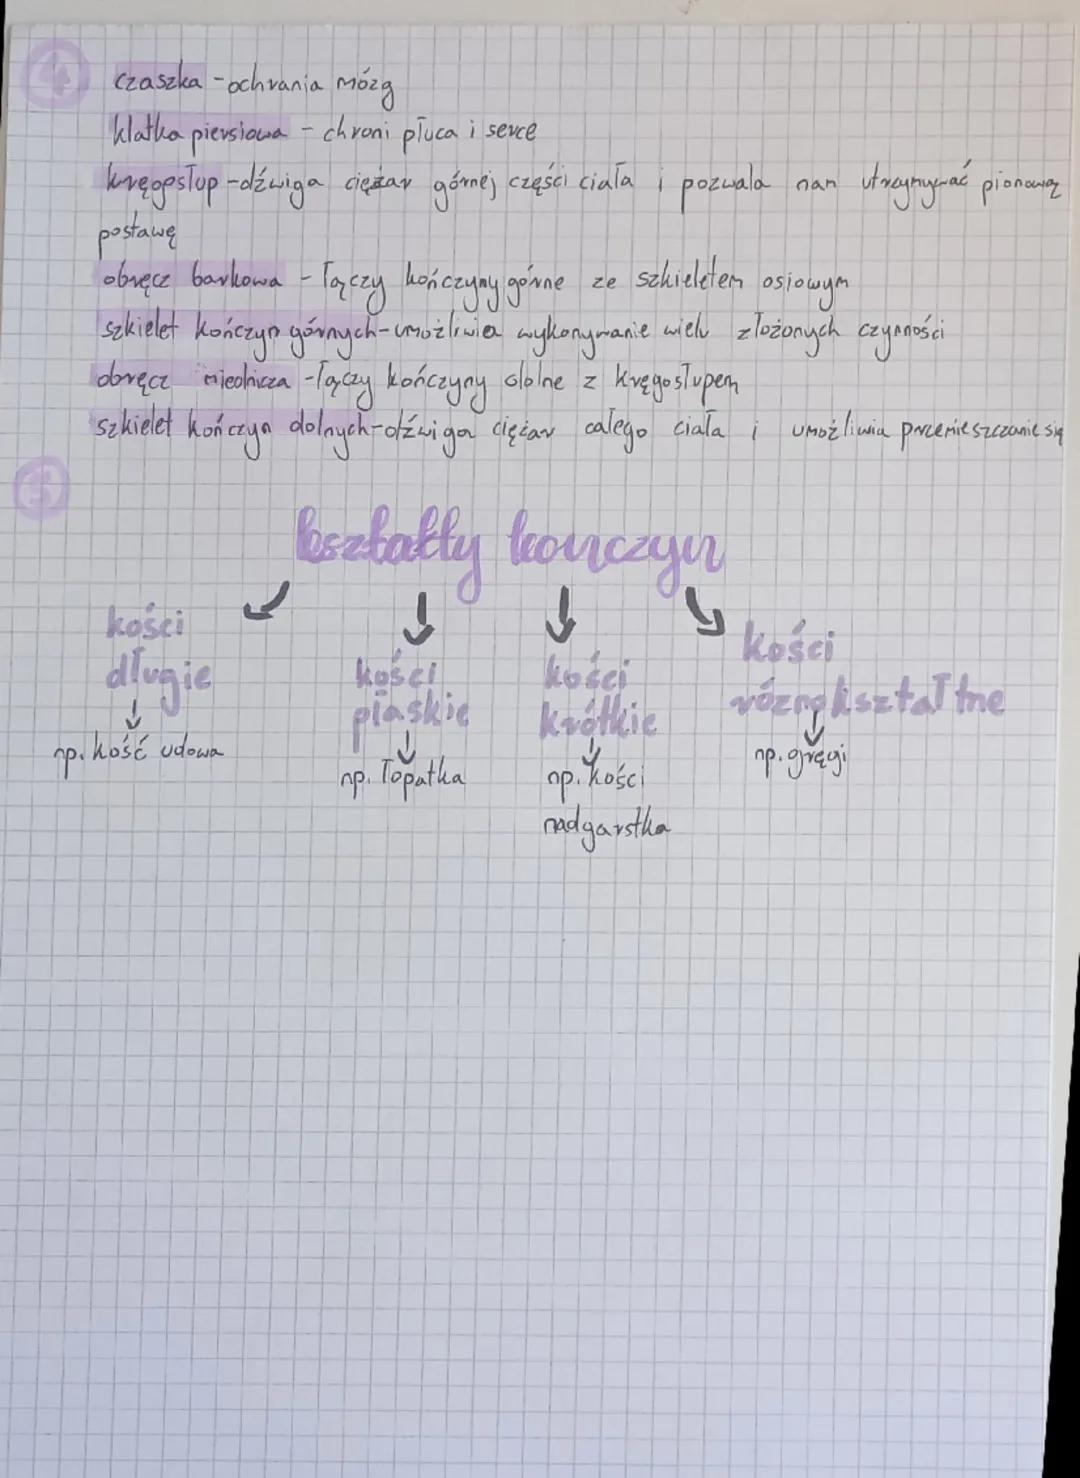 4 czaszka - ochrania mózg
klatka piersiowa - chroni płuca i serce
kręgosłup - dźwiga ciężar górnej części ciała i pozwala nam utrzymywać pionową
postawę
obręcz barkowa - łączy kończyny górne ze szkieletem osiowym
szkielet kończyn górnych - umożliwia wykonywanie wielu złożonych czynności
obręcz miednicza - łączy kończyny dolne z kręgosłupem
szkielet kończyn dolnych - dźwiga ciężar całego ciała i umożliwia przemieszczanie się
5
kształty kończyn
kości
długie
np. kość udowa
kości
płaskie
np. łopatka
kości
krótkie
np. kości
nadgarstka
kości
różnokształtne
np. gręgi